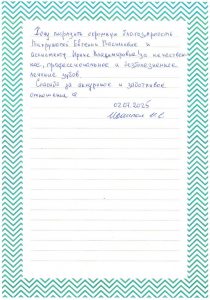 Хочу выразить огромную благодарность
Евгении Васильевне и
ассистенту Ирине Владимировне за качествен-
ное, профессиональное и безболезненное
лечение зубов.
Спасибо за аккуратное и заботливое
отношение
02.07.2025